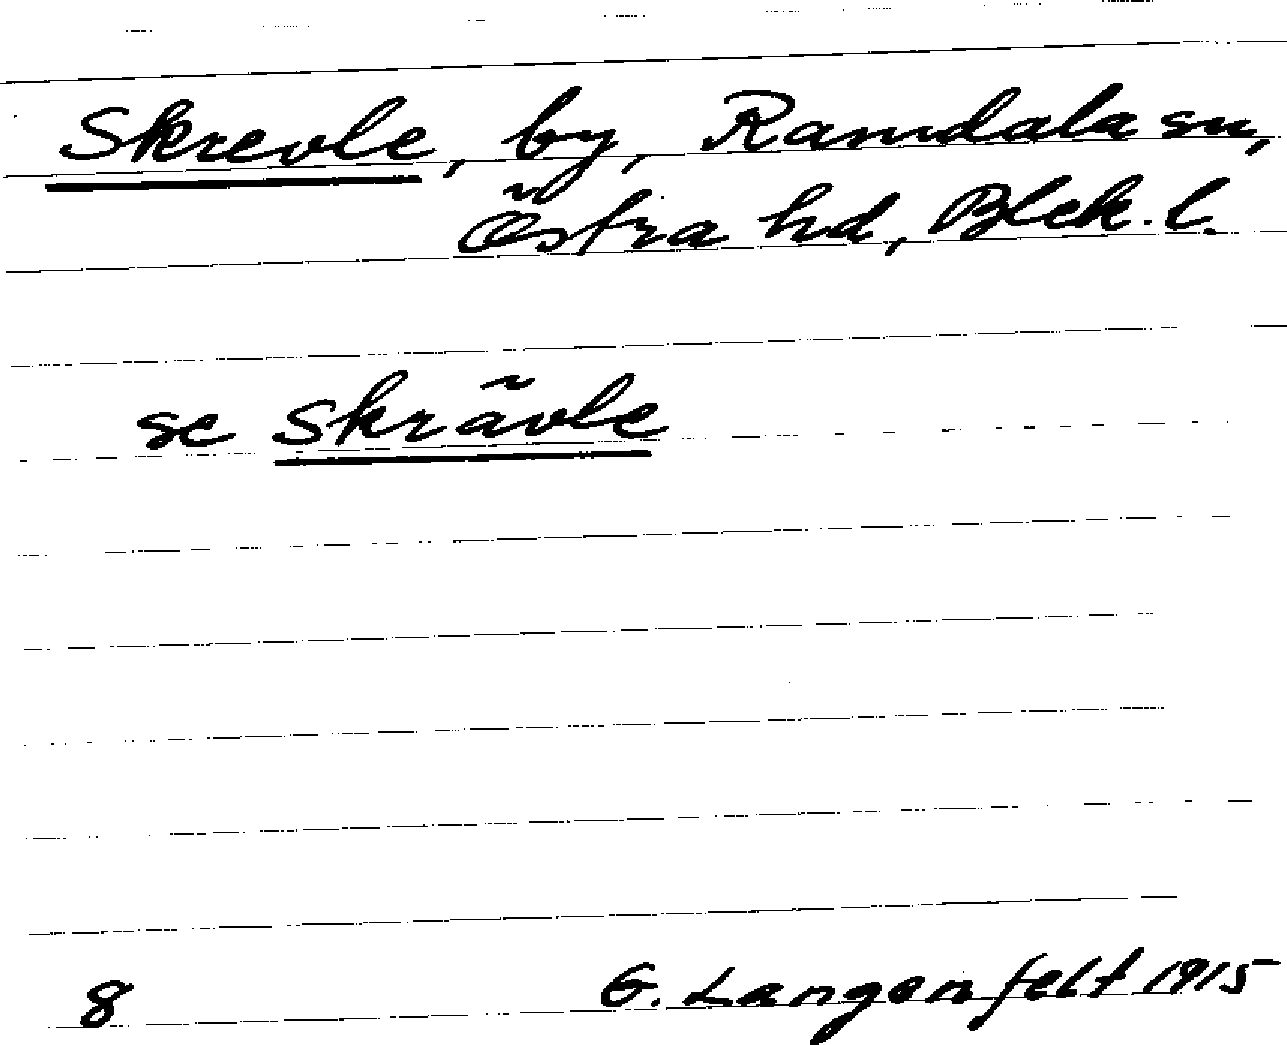 Skrevle, by, Ramdala sn,
Östra hd, Blek. l.
se Skrävle
8 G. Langenfelt 1915